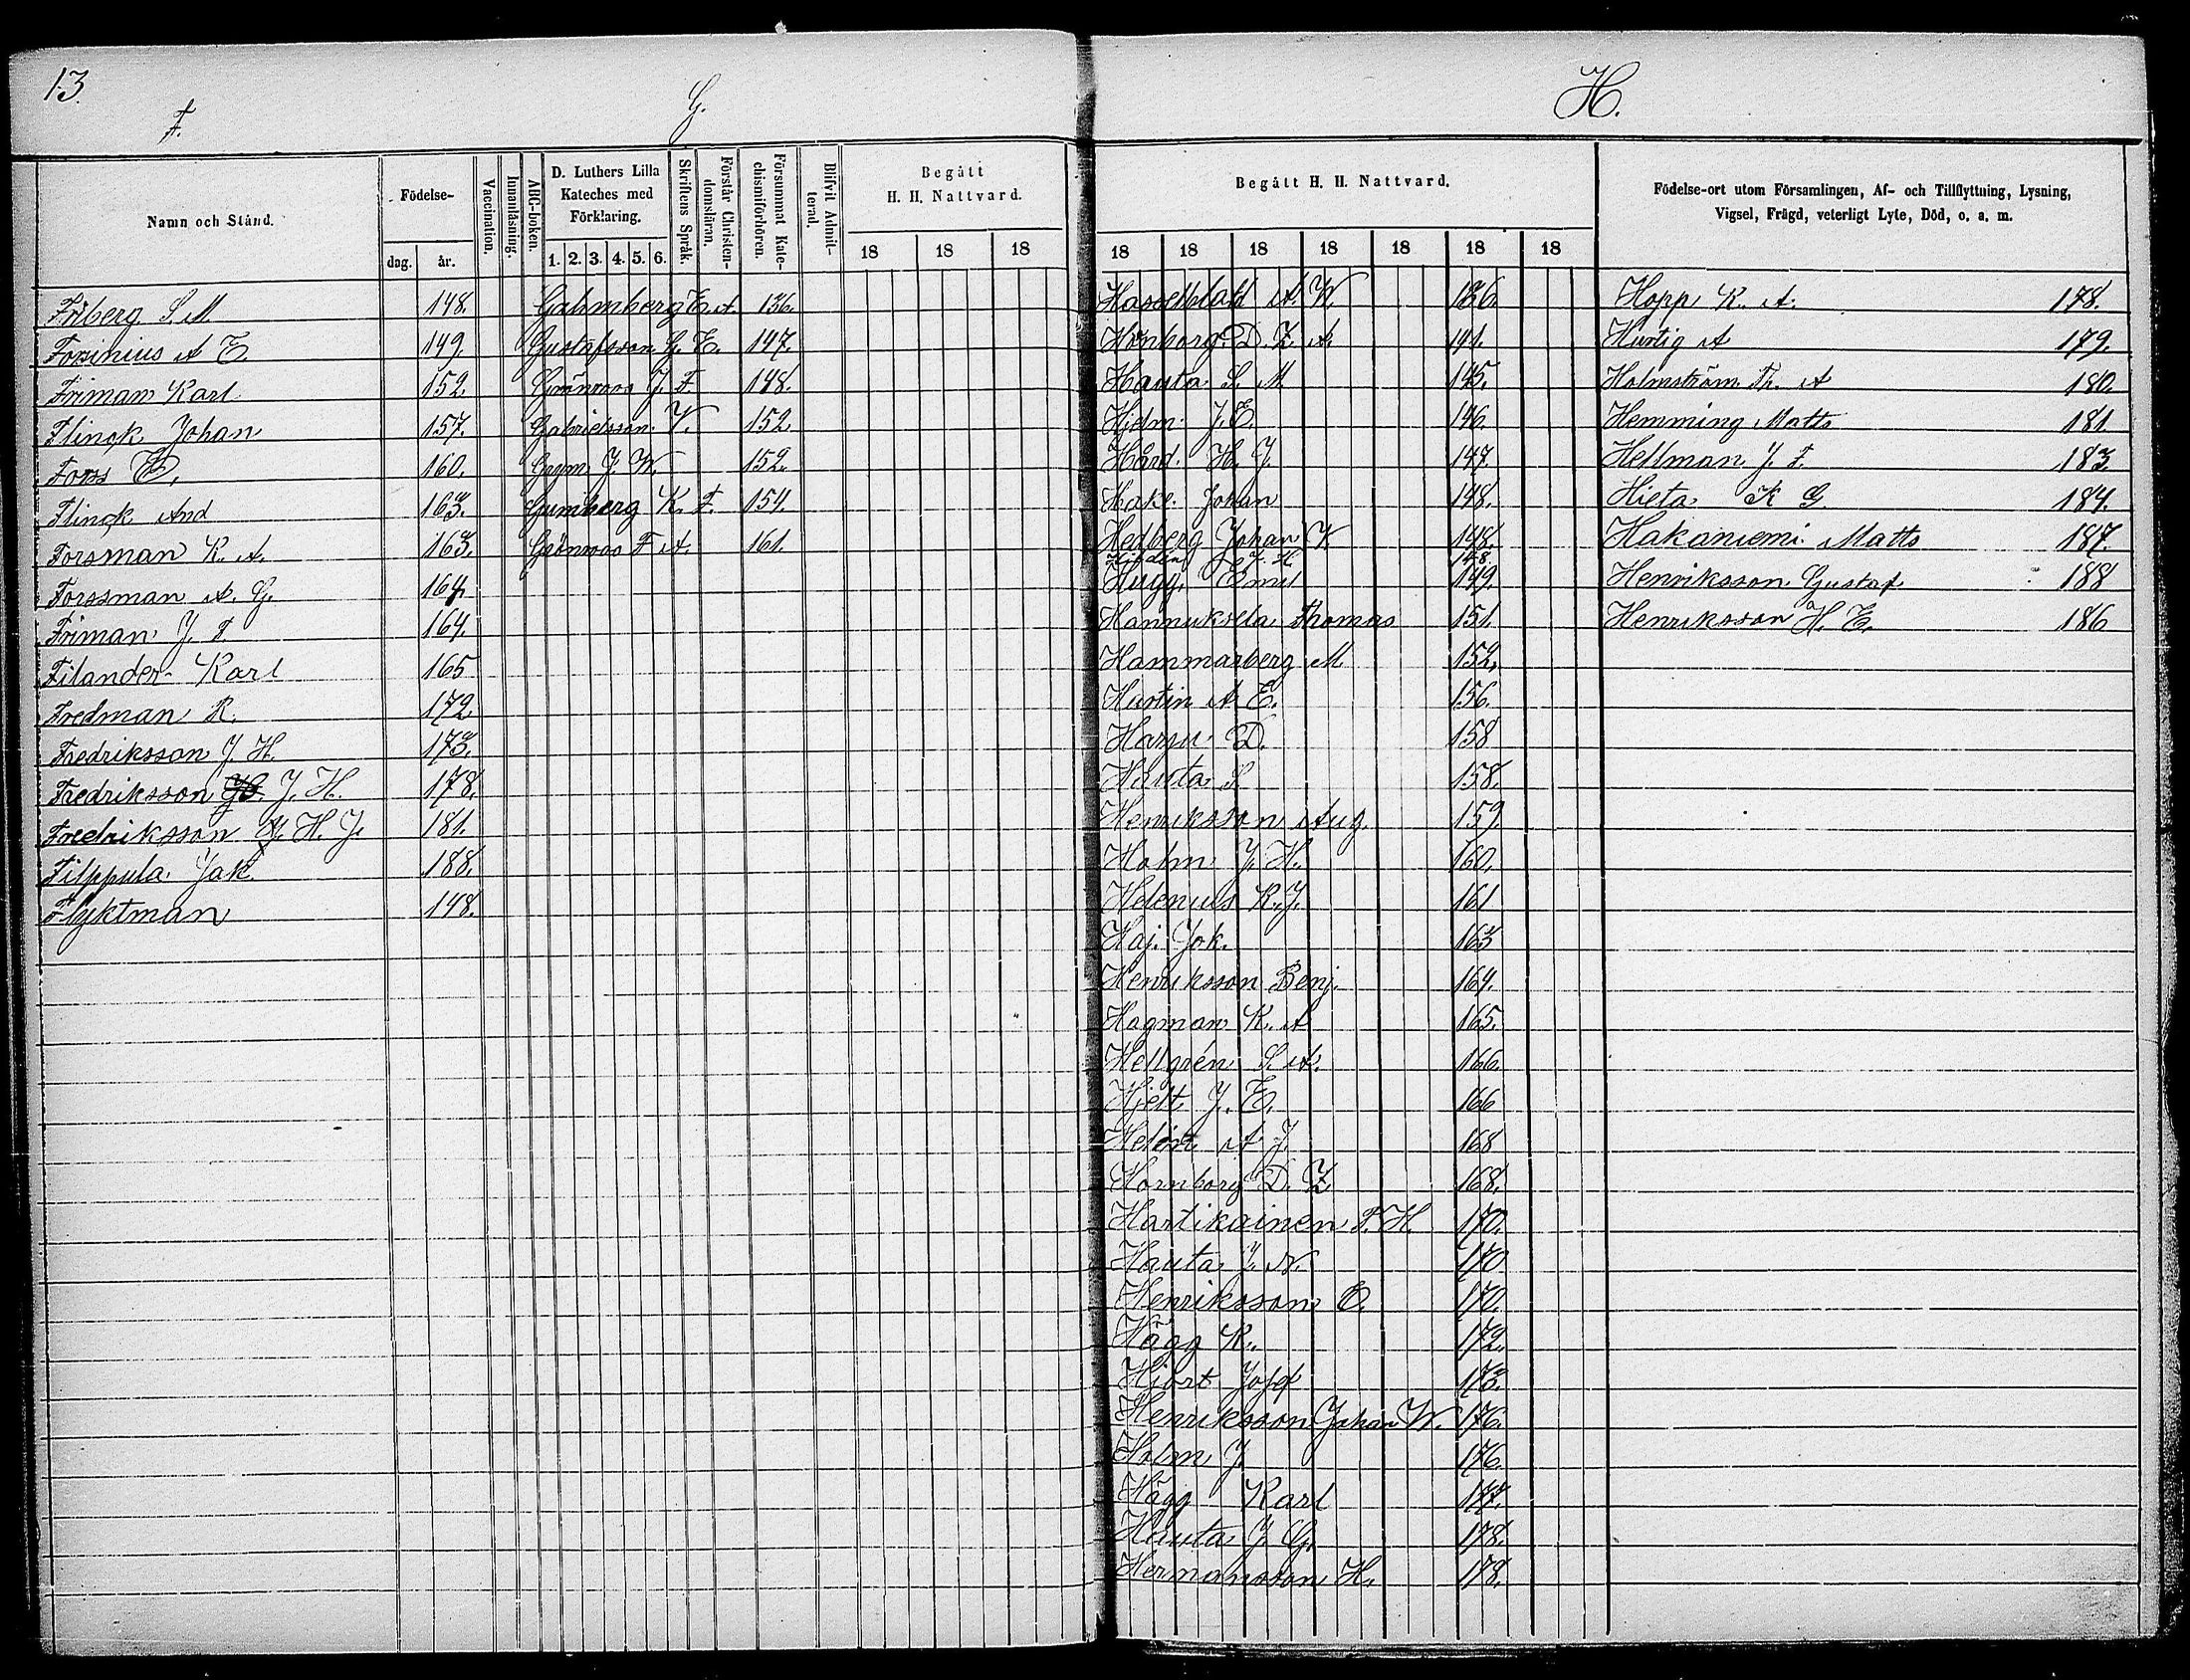 13.
F.
G.
Namn och Stånd.
Födelse-
dag.
år.
Vaccination.
Innanläsning.
ABC-boken.
D. Luthers Lilla
Kateches med
Förklaring.
1. 2. 3. 4. 5. 6.
Skriftens Språk.
Förstår Christen-
domsläran.
Försummat Kate-
chismiförhören.
Blifvit Admit-
terad.
Begått
H. H. Nattvard.
18 18 18
Friberg S. M 148.
Forsinius A E 149.
Friman Karl 152.
Flinck Johan 157.
Forss E. 160.
Flinck And 163.
Forsman K. A. 163.
Forssman A. G. 164.
Friman J. F. 164.
Filander Karl 165
Fredman K. 172
Fredriksson J. H. 173.
Fredriksson J. H. 178.
Fredriksson J. H. J. 181.
Filppula Jak. 188.
Flyktman 148.
Gahmberg E. A. 136.
Gustafsson G. E. 147.
Grönroos J. F. 148.
Gabrielsson V. 152
J. W. 152.
Gumberg K. F. 154.
Grönroos F A. 161.
H.
Begått H. H. Nattvard.
18 18 18 18 18 18 18
Hasselblatt A. W. 136.
Hornborg D. Z. A. 141.
Hauta S. M 145.
Hjelm J. E. 146.
Hård H. J. 147.
Hake Johan 148.
Hedberg Johan W 148.
J. H 148.
Hugg Emil 149.
Hannuksela Thomas 151.
Hammarberg M 152.
Hurtin A E. 156.
Harju D. 158
Hauta S. 158.
Henriksson Aug. 159.
Holm J. H. 160.
Helenius K. J. 161
Haj. Jok. 163
Henriksson Benj. 164.
Hagman K. A 165.
Hellgrén S. A. 166.
Hjelt J. E. 166
Helén A J. 168
Hornborg D. Z 168.
Hartikainen F. H. 170.
Hauta J. N. 170
Henriksson E. 170.
Hägg K. 172.
Hjort Josef 173.
Henriksson Johan W. 176.
Holm J. 176.
Hägg Karl 177.
Hauta J. G. 178.
Hermansson H. 178.
Födelse-ort utom Församlingen, Af- och Tillflyttning, Lysning,
Vigsel, Frägd, veterligt Lyte, Död, o. a. m.
Hopp K. A. 178.
Hurtig A 179.
Holmström Fr. A 180.
Hemming Matts 181.
Hellman J. F. 183.
Hieta K G 184.
Hakaniemi Matts 187.
Henriksson Gustaf 188
Henriksson H. E. 186